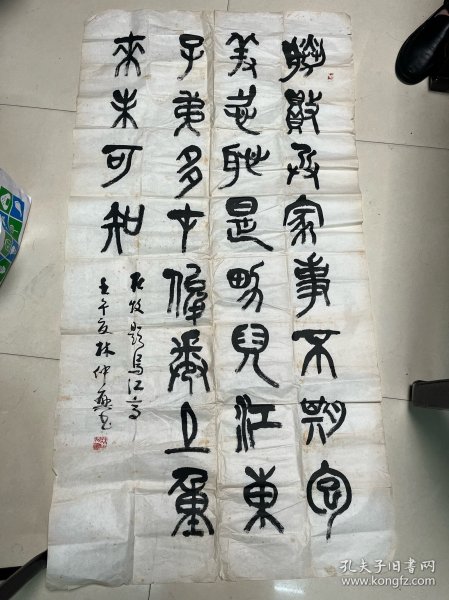 勝敗兵家事不期包
羞忍恥是男兒江東
子弟多才俊卷土重
來未可知
杜牧題烏江亭
壬午夏林仲興書
孔夫子旧书网
www.kongfz.com